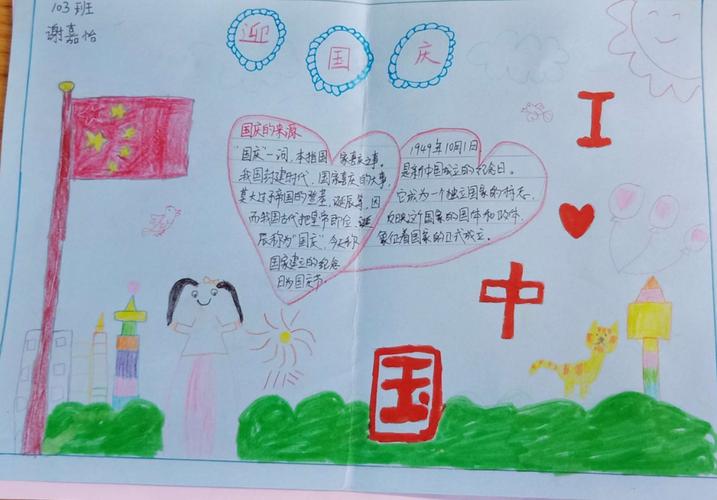 103班
谢嘉怡
迎国庆
国庆的来源
"国庆"一词,本指国家喜庆之事。
我国封建时代,国家喜庆的大事,
莫大过于帝国的登基、诞辰等,因
而我国古代把皇帝即位、诞
辰称为"国庆",今天称
国家建立的纪念
日为国庆节。
1949年10月1日
是新中国成立的纪念日。
它成为一个独立国家的标志,
反映这个国家的国体和政体,
象征着国家的正式成立。
I
中
国